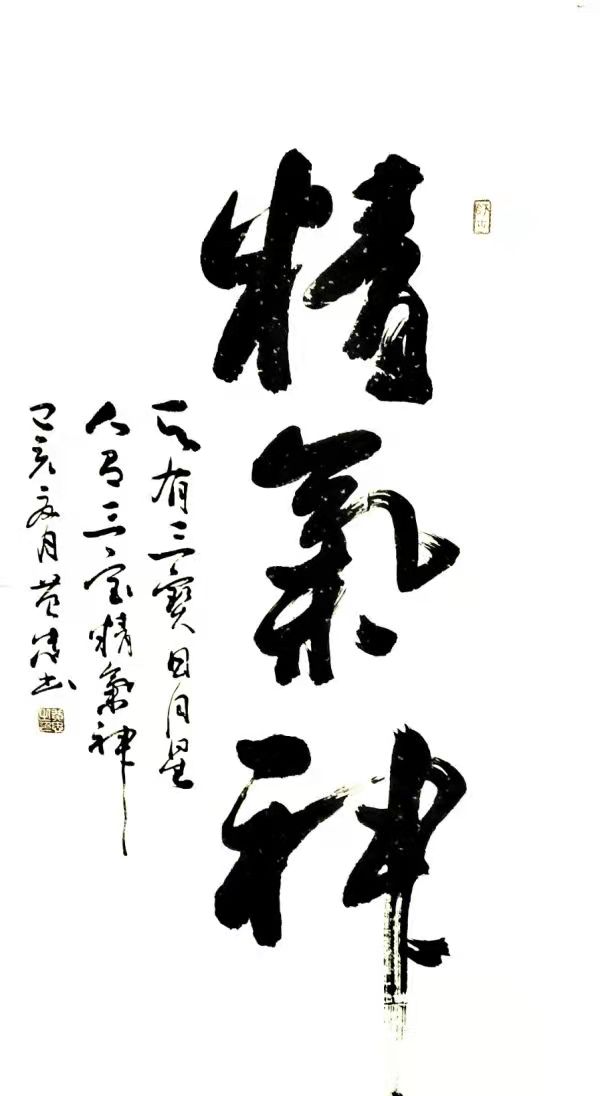 精氣神
天有三寶日月星
人有三宝精氣神
己亥夏月黄书